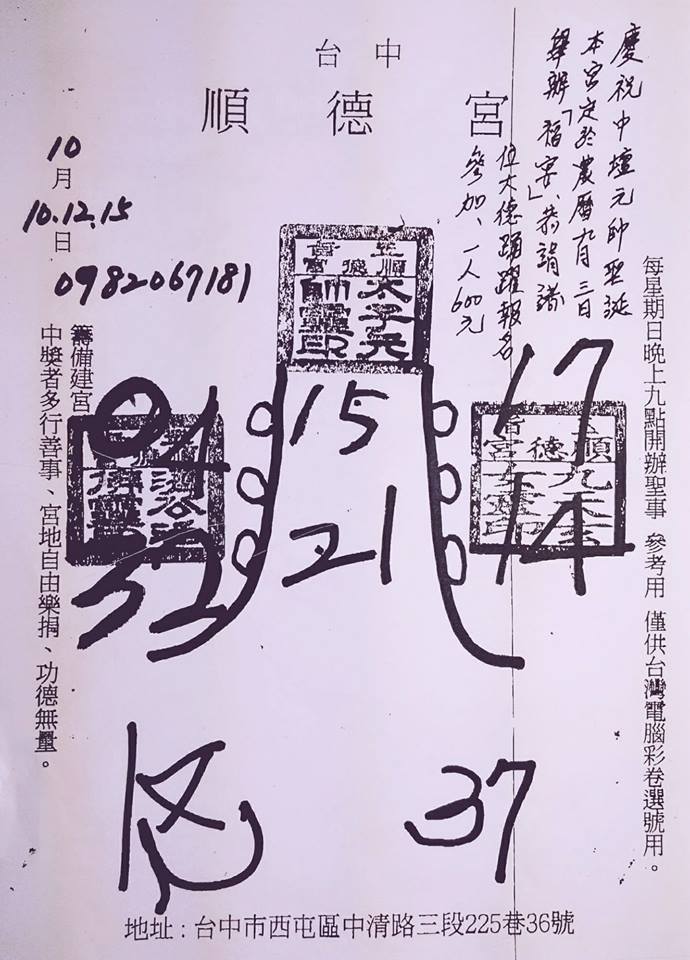 台中
順德宮
慶祝中壇元帥聖誕
本宮定於農曆九月三日
舉辦「福宴」恭請諸
位大德踴躍報名
參加、一人600元
10
月
10.12.15
日
0982067181
每星期日晚上九點開辦聖事 參考用 僅供台灣電腦彩卷選號用。
籌備建宮
中獎者多行善事、宮地自由樂捐、功德無量。
順德宮
太子元
帥靈印
順德宮
九天玄
女靈印
04
15
17
32
21
14
37
地址：台中市西屯區中清路三段225巷36號